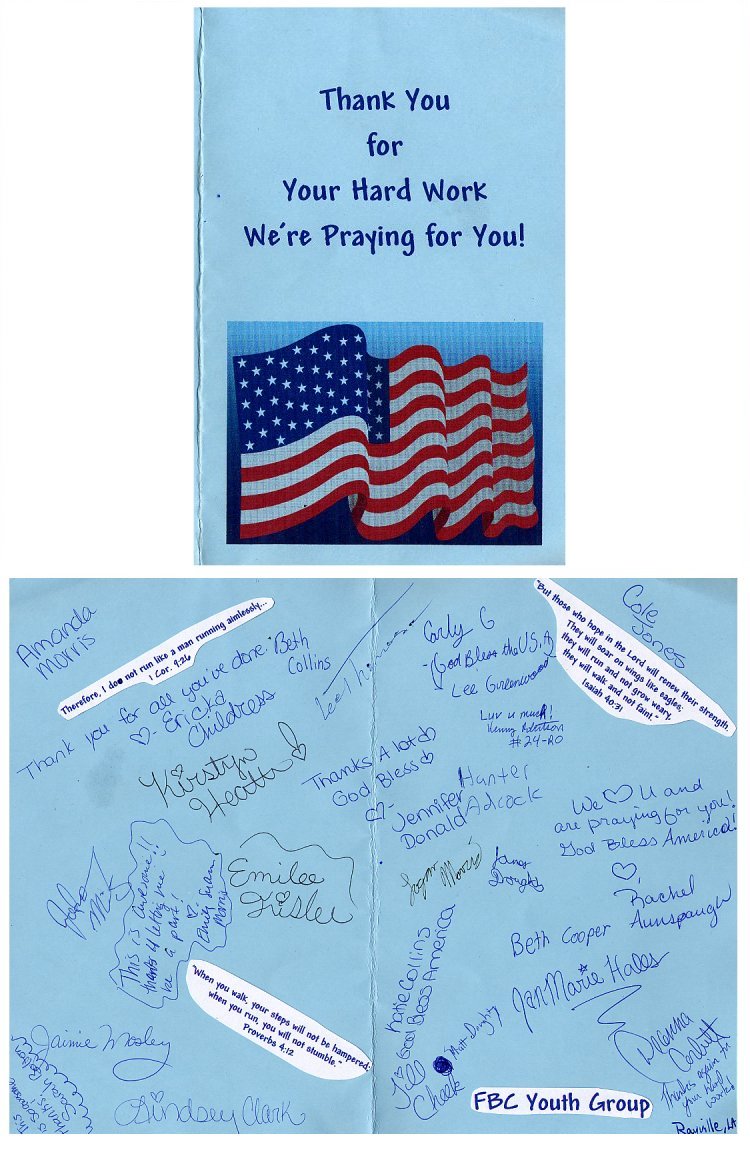 Thank You
for
Your Hard Work
We're Praying for You!
Amanda
Morris
Therefore, I do not run like a man running aimlessly...
1 Cor. 9:26
Beth
Collins
Thank you for all you've done.
♡- Ericka
Childress
Kirstyn
Carly G
God Bless the U.S.A
Lee Greenwood
Luv u much!
#24-RO
"But those who hope in the Lord will renew their strength.
They will soar on wings like eagles;
they will run and not grow weary,
they will walk and not faint."
Isaiah 40:31
Cole
Jones
Thanks A lot
God Bless
♡-
Jennifer
Donald
Hunter
Adcock
We ♡ U and
are praying for you!
God Bless America!
♡,
Rachel
Aunspaugh
Logan Morris
This is awesome!!
thanks 4 letting me
be a part!
Emilee
Beth Cooper
JanMarie Hales
Katie Collins
God Bless America
Jill
Cheek
"When you walk, your steps will not be hampered;
when you run, you will not stumble."
Proverbs 4:12
Jaimie Mosley
Lindsey Clark
This
is awesome
thanks
Deanna
Corbett
Thanks again for
your hard
work
FBC Youth Group
Rayville, LA